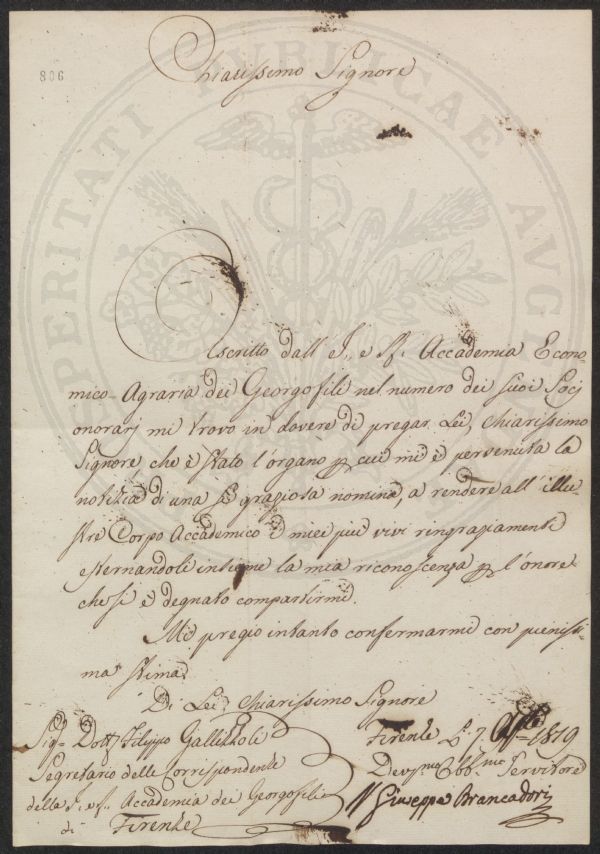 806
Chiarissimo Signore
PROSPERITATI PUBLICAE AUGENDAE
Ascritto dall' I. e R. Accademia Econo-
mico-Agraria dei Georgofili nel numero dei suoi Socj
onorarj mi trovo in dovere di pregar Lei, Chiarissimo
Signore, che è stato l'organo p cui mi è pervenuta la
notizia di una sì graziosa nomina, a rendere all' illu-
stre Corpo Accademico i miei più vivi ringraziamenti
esternandoli insieme la mia riconoscenza p l'onore
che si è degnato compartirmi.
Mi pregio intanto confermarmi con pienissi-
ma stima
Di Lei Chiarissimo Signore
Sig. Dott. Filippo Gallizzioli
Segretario delle Corrispondenze
della I. e R. Accademia dei Georgofili
di Firenze
Firenze Lì 7. 1819
Devmo Obbmo Servitore
Giuseppe Brancadori